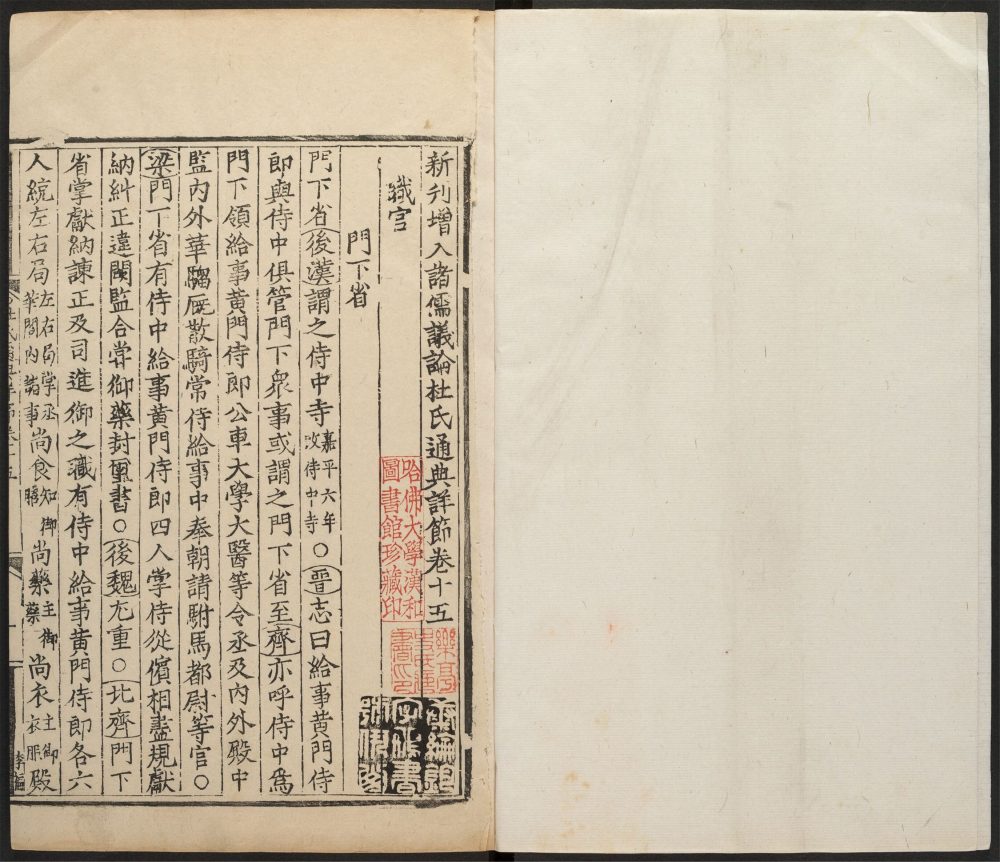 新刋增入諸儒議論杜氏通典詳節卷十五
職官
門下省
門下省後漢謂之侍中寺嘉平六年改侍中寺○晋志曰給事黄門侍
郎與侍中俱管門下衆事或謂之門下省至齊亦呼侍中爲
門下領給事黄門侍郎公車大學大醫等令丞及内外殿中
監内外華騮厩散騎常侍給事中奉朝請駙馬都尉等官○
梁門下省有侍中給事黄門侍郎四人掌侍從儐相盡規獻
納糾正違闕監合甞御藥封璽書○後魏尤重○北齊門下
省掌獻納諫正及司進御之職有侍中給事黄門侍郎各六
人統左右局左右局掌承華閤内諸事尚食知御膳尚藥主御藥尚衣主御衣服殿
哈佛大學漢和
圖書館珍藏印